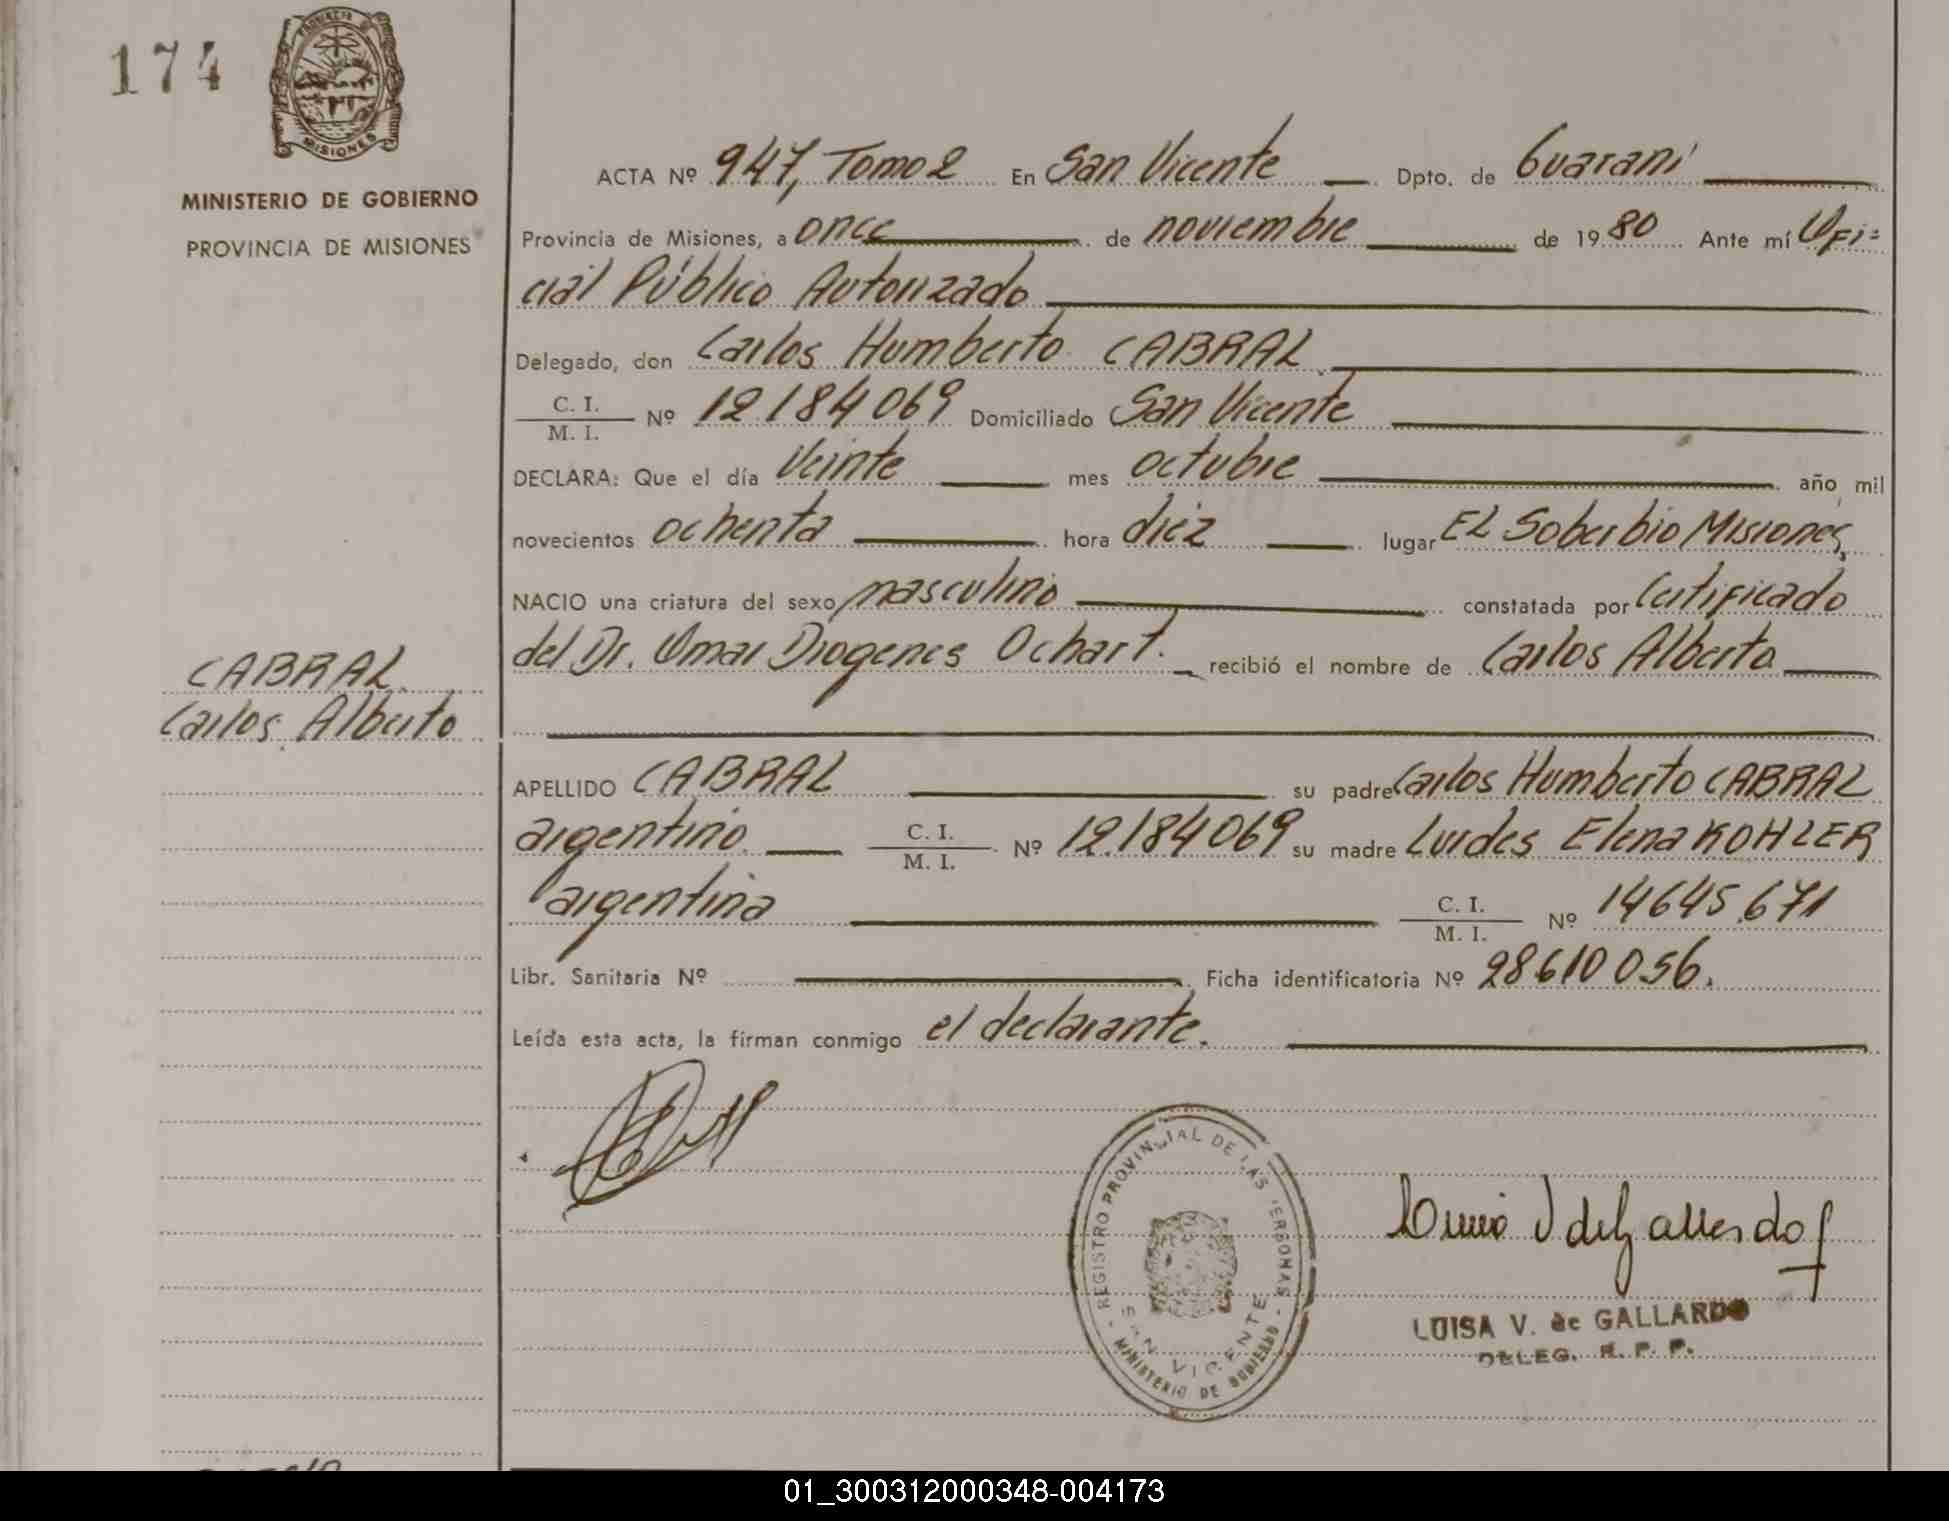 174
PROVINCIA DE
MISIONES
MINISTERIO DE GOBIERNO
PROVINCIA DE MISIONES
CABRAL
Carlos Alberto
ACTA Nº 947, Tomo 2 En San Vicente Dpto. de Guaraní
Provincia de Misiones, a once de noviembre de 1980 Ante mí Ofi=
cial Público Autorizado
Delegado, don Carlos Humberto CABRAL
C. I.
M. I. Nº 12.184.069 Domiciliado San Vicente
DECLARA: Que el día Veinte mes octubre año mil
novecientos ochenta hora diez lugar EL Soberbio Misiones,
NACIO una criatura del sexo masculino constatada por Certificado
del Dr. Omar Diogenes Ochart. recibió el nombre de Carlos Alberto
APELLIDO CABRAL su padre Carlos Humberto CABRAL
argentino. C. I.
M. I. Nº 12.184.069 su madre Lurdes Elena KOHLER
argentina C. I.
M. I. Nº 14645.671
Libr. Sanitaria Nº Ficha identificatoria Nº 28610056.
Leída esta acta, la firman conmigo el declarante.
REGISTRO PROVINCIAL DE LAS PERSONAS
SAN VICENTE
MINISTERIO DE GOBIERNO
LUISA V. de GALLARDO
DELEG. R. P. P.
01_300312000348-004173